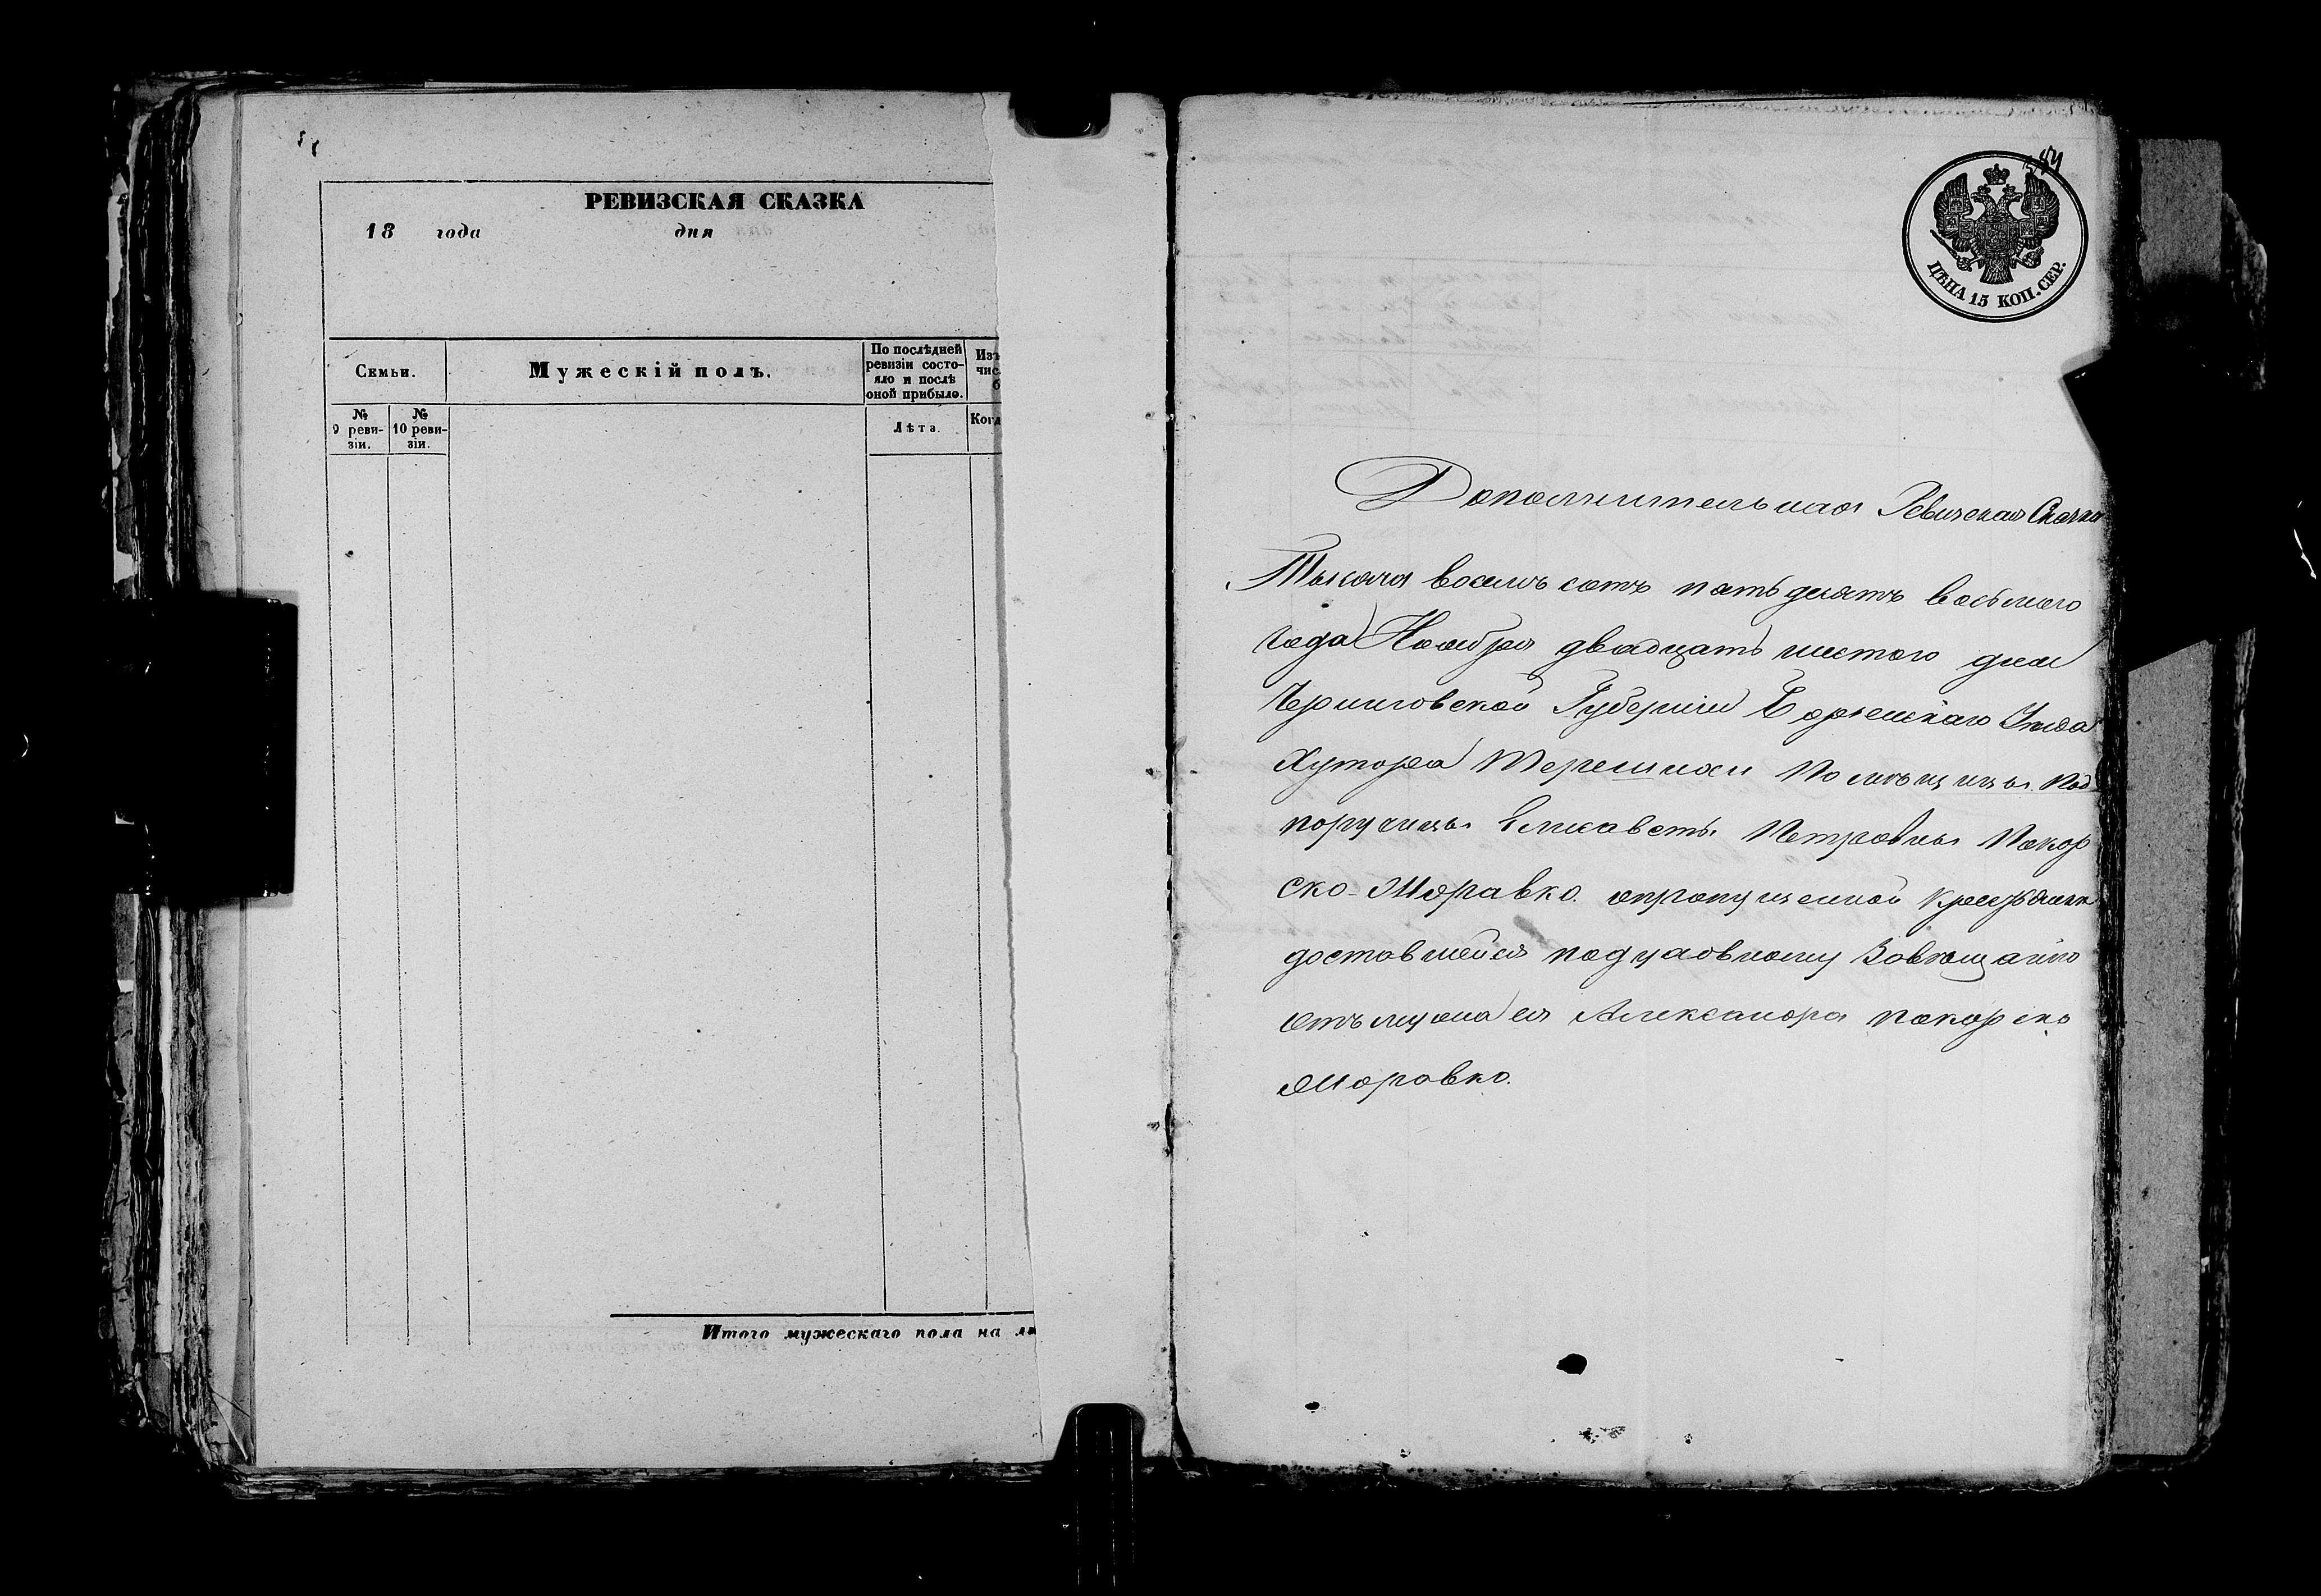 РЕВИЗСКАЯ СКАЗКА
18 года дня
Семьи.
Мужескій полъ.
По послѣдней
ревизіи состо-
яло и послѣ
оной прибыло.
Изъ
чис
№
9 реви-
зіи.
№
10 реви-
зіи.
Лѣта.
Когд
Итого мужескаго пола на ли
ЦѢНА 15 КОП. СЕР.
Дополнительная Ревизская Сказка
Тысяча восемь сотъ пятьдесятъ восьмого
года Ноября двадцать шестого дня
Черниговской Губерніи Борзенскаго Уѣзда
Хутора Терешихи Помѣщицы Под
поручицы Елисаветы Петровны Покор
ско-Жоравко опропущенной Крестьянки
доставшейся подуховному Завѣщанію
отъ мужа ея Александра Покорско
Жоравко.